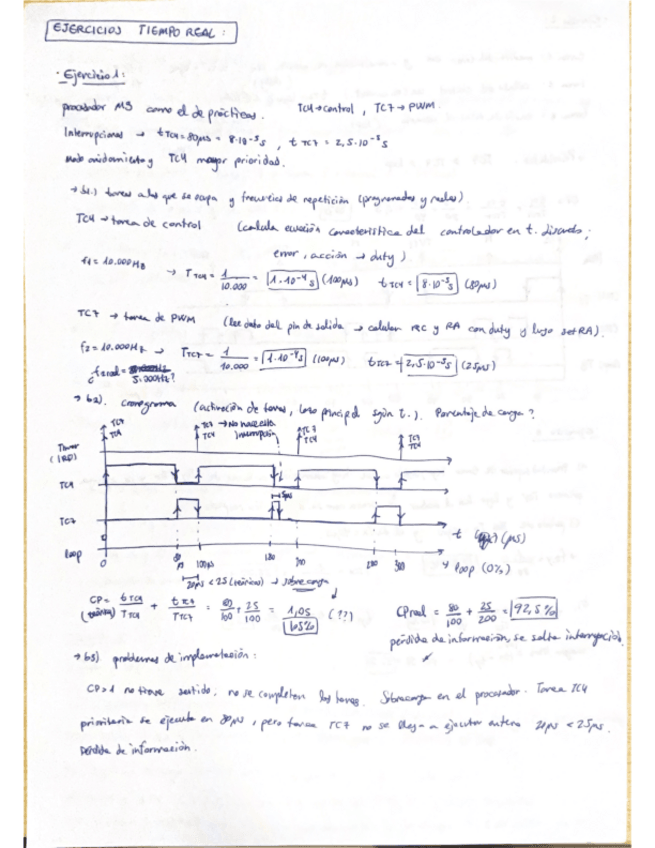 EJERCICIOS TIEMPO REAL:
· Ejercicio 1:
procesador M3 como el de prácticas. TC4 → control, TC7 → PWM.
Interrupciones → t TC4 = 80µs = 8·10⁻⁵ s, t TC7 = 2,5·10⁻⁵ s
anidamiento y TC4 mayor prioridad.
→ b1.) tareas a las que se ocupa y frecuencias de repetición (programadas y reales)
TC4 → tarea de control (calcula ecuación característica del controlador en t. discreto;
error, acción → duty)
f1 = 10.000Hz → T TC4 = 1/10.000 = 1·10⁻⁴ s (100µs) t TC4 = 8·10⁻⁵ s (80µs)
TC7 → tarea de PWM (lee dato del pin de salida → calculan RC y RA con duty y luego set RA).
f2 = 10.000Hz → T TC7 = 1/10.000 = 1·10⁻⁴ s (100µs) t TC7 = 2,5·10⁻⁵ s (25µs)
f2real =
5.000Hz?
→ b2). cronograma (activación de tareas, lazo principal según t.). Porcentaje de carga?
TC7 TC7 → No hace esta TC7 TC7
TC4 TC4 interrupción TC4 TC4
Timer
(IRQ)
TC4
5µs
TC7
t (µs)
loop 0 80 µs 100µs 180 200 280 300 loop (0%)
20µs < 25 (teóricos) → sobrecarga
CP = t TC4/T TC4 + t TC7/T TC7 = 80/100 + 25/100 = 1,05 (??)
(teórica) 105%
CPreal = 80/100 + 25/200 = 92,5%
pérdida de información, se salta interrupción.
→ b3) problemas de implementación:
CP>1 no tiene sentido, no se completan las tareas. Sobrecarga en el procesador. Tarea TC4
prioritaria se ejecuta en 80µs, pero tarea TC7 no se llega a ejecutar entera 20µs < 25µs.
Pérdida de información.